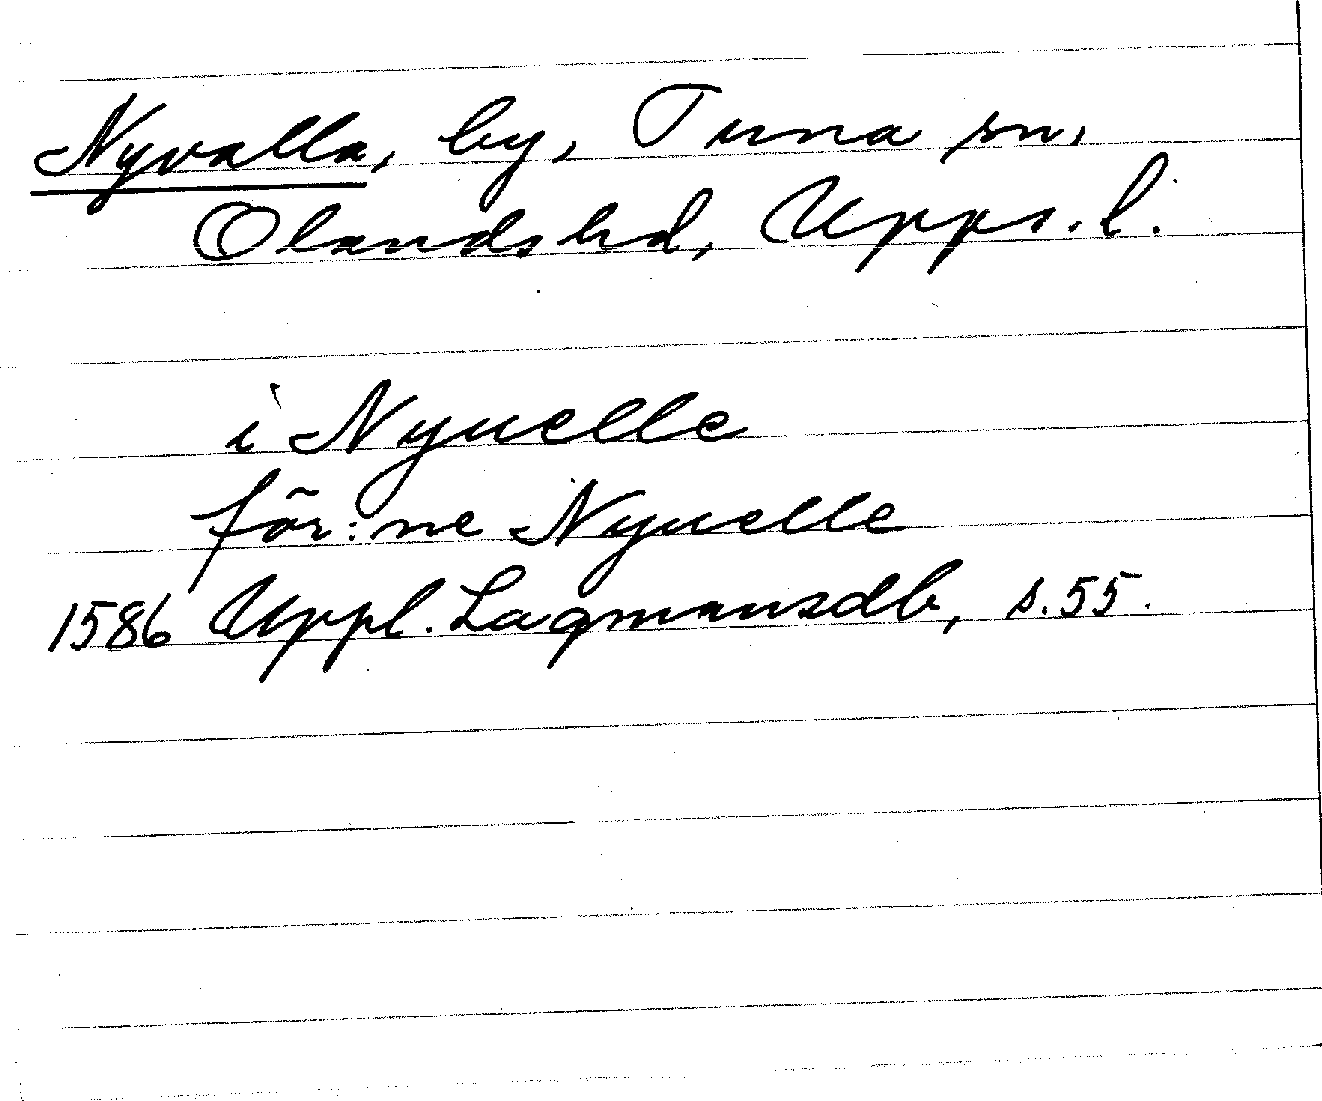 Nyvalla, by, Tuna sn,
Olands hd, Upps. l.
i Nyuelle
för:ne Nyuelle
1586 Uppl. Lagmansdb, s. 55.